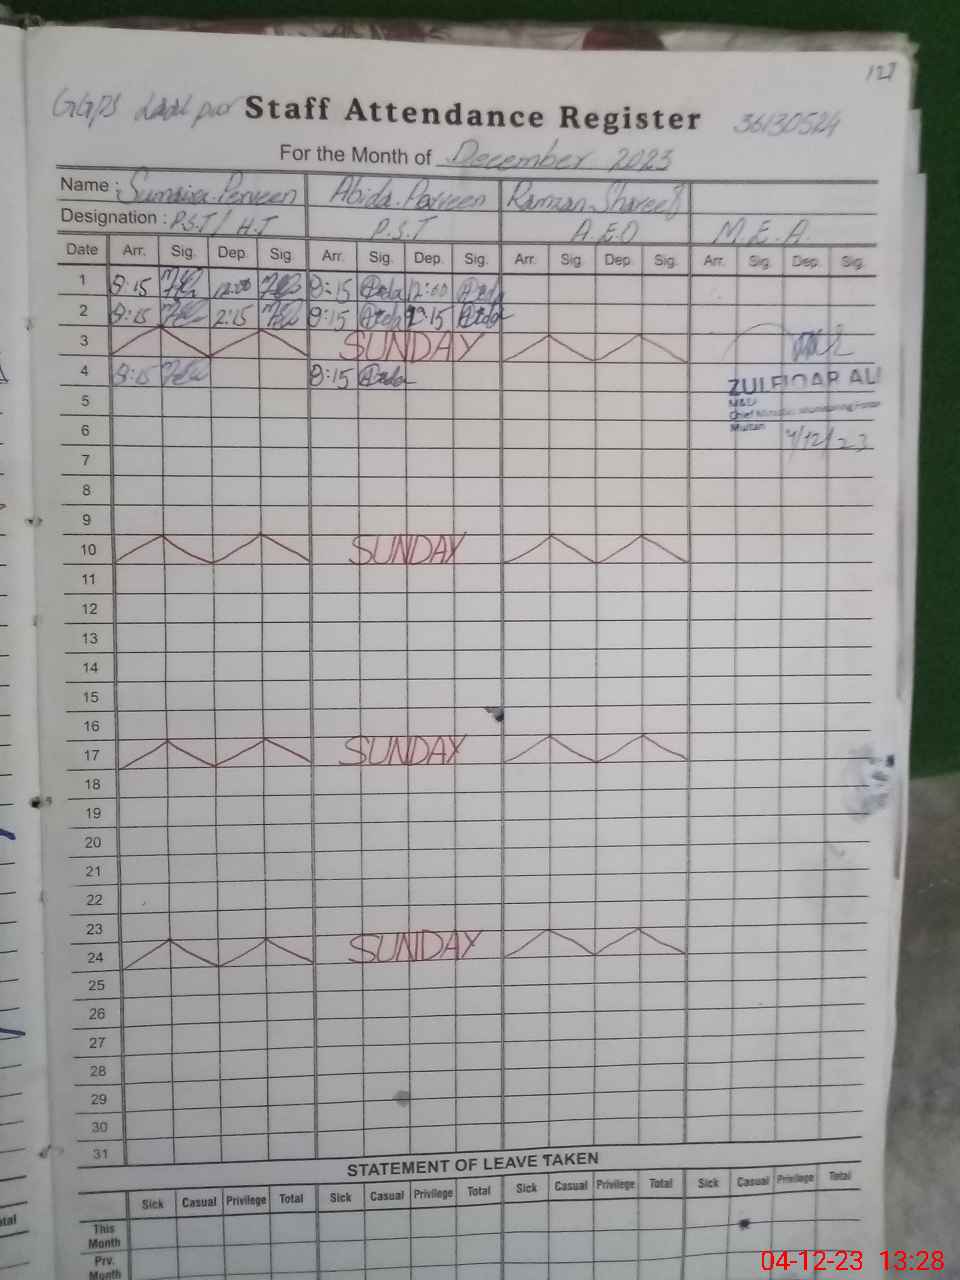 127
GGPS Laal pur Staff Attendance Register 36130524
For the Month of December 2023
Name : Sumaira Perveen Abida Parveen Ramzan Shareef
Designation : P.S.T / H.T P.S.T A.E.O M.E.A.
Date Arr. Sig. Dep. Sig. Arr. Sig. Dep. Sig. Arr. Sig. Dep. Sig. Arr. Sig. Dep. Sig.
1 8:15 12:00 8:15 Abida 12:00 Abida
2 8:15 2:15 8:15 Abida 2:15 Abida
3 SUNDAY
4 8:15 8:15 Abida
ZULFIQAR ALI
5
Multan
6 4/12/23
7
8
9
10 SUNDAY
11
12
13
14
15
16
17 SUNDAY
18
19
20
21
22
23
24 SUNDAY
25
26
27
28
29
30
31
STATEMENT OF LEAVE TAKEN
Sick Casual Privilege Total Sick Casual Privilege Total Sick Casual Privilege Total Sick Casual Privilege Total
This
Month
Prv.
Month
04-12-23 13:28